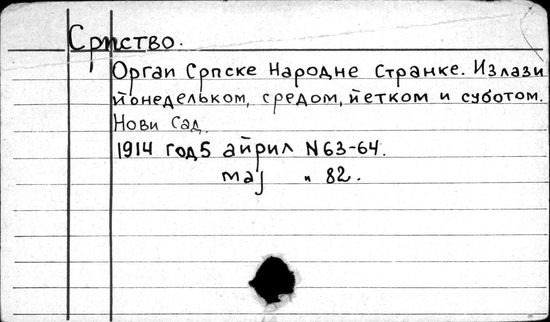 Српство.
Орган Српске Народне Странке. Излази
понедељком, средом, петком и суботом.
Нови Сад.
1914 год5 април N63-64.
мај " 82.